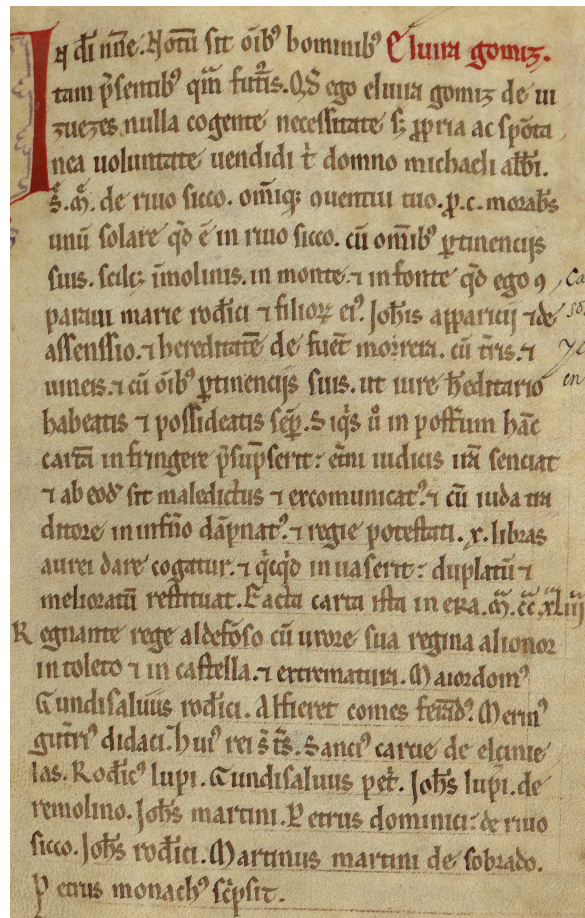 In di nne. Notu sit oibꝰ hominibꝰ Eluira gomiz.
tam p̄sentibꝰ qm̄ futis. Qd ego eluira gomiz de ui
zuezes nulla cogente necessitate s; ꝓpria ac spōta
nea uoluntate uendidi t̄ domno michaeli abbi.
S. M̄. de riuo sicco. om̄iq; ꝯuentui tuo. ꝓ. c. morabs
unū solare qd ē in riuo sicco. cū om̄ibꝰ ꝑtinencijs
suis. scilc; ī molinis. in monte ⁊ in fonte qd ego ꝯ
paraui marie rodici ⁊ filioꝝ eiꝰ. Johis apparicij ⁊ de
assenssio. ⁊ hereditatē de fuēt morrera. cū t̄ris. ⁊
uineis. ⁊ cū oibꝰ ꝑtinencijs suis. ut iure h̄editario
habeatis ⁊ possideatis semp̄. Siqs ū in postrum hāc
cartā infringere p̄supserit: et̄ni iudicis irā senciat
⁊ ab eod sit maledictus ⁊ excomunicatꝰ. ⁊ cū iuda tra
ditore in inf̄no dāpnatꝰ. ⁊ regie potestati. x. libras
aurei dare cogatur. ⁊ qcqd inuaserit: duplatū ⁊
melioratū restituat. Facta carta ista in era. M̄. cc̄. xl iiij
Regnante rege aldefōso cū uxore sua regina alionor
in toleto ⁊ in castella. ⁊ extrematura. Maiordomꝰ
Gundisaluus rodici. Alfieret comes fernādꝰ. Merinꝰ
gut̄riꝰ didaci. Huiꝰ rei s̄ t̄s. Sanciꝰ carue de elcinie
las. Rodicꝰ lupi. Gundisaluus pet̄. Johs lupi. de
remolino. Johs martini. Petrus dominici: de riuo
sicco. Johs rodici. Martinus martini de sobrado.
Petrus monachꝰ sc̄psit.